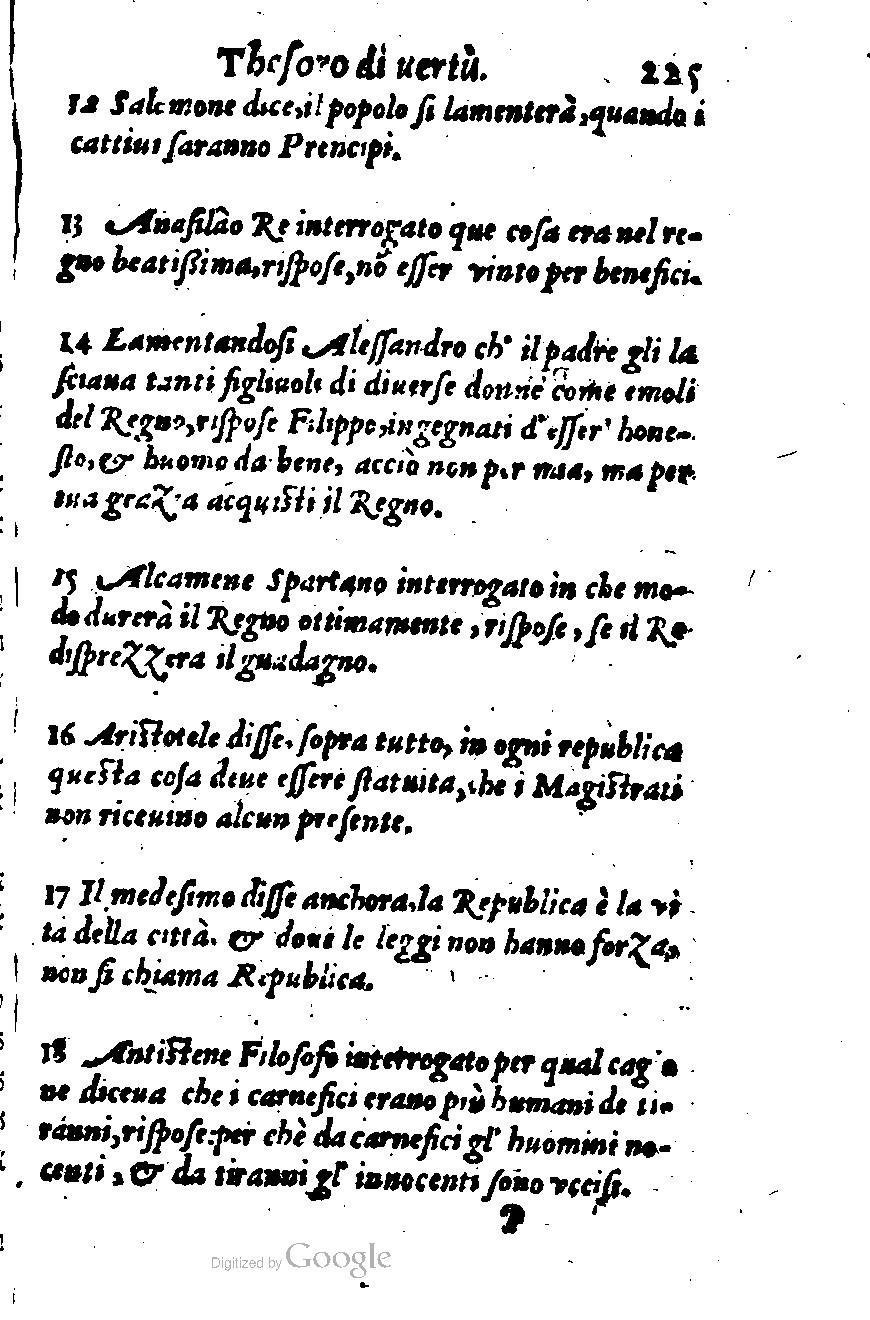 Theſoro di uertù. 225
12 Salomone dice, il popolo ſi lamenterà, quando i
cattiui ſaranno Prencipi.
13 Anaſilão Re interrogato que coſa era nel re-
gno beatiſsima, riſpoſe, nõ eſſer vinto per benefici.
14 Lamentandoſi Aleſſandro ch' il padre gli la
ſciaua tanti figliuoli di diuerſe donne come emoli
del Regno, riſpoſe Filippo, ingegnati d'eſſer' hone-
ſto, & huomo da bene, acciò non per mia, ma per
tua grazia acquiſti il Regno.
15 Alcamene Spartano interrogato in che mo-
do durerà il Regno ottimamente, riſpoſe, ſe il Re
diſprezzera il guadagno.
16 Ariſtotele diſſe, ſopra tutto, in ogni republica
queſta coſa deue eſſere ſtatuita, che i Magiſtrati
non riceuino alcun preſente.
17 Il medeſimo diſſe anchora, la Republica è la vi
ta della città. & doue le leggi non hanno forza,
non ſi chiama Republica.
18 Antiſtene Filoſofo interrogato per qual cagio
ne diceua che i carnefici erano più humani de ti-
ranni, riſpoſe: per chè da carnefici gl' huomini no-
centi, & da tiranni gl' innocenti ſono vcciſi.
P
Digitized by Google